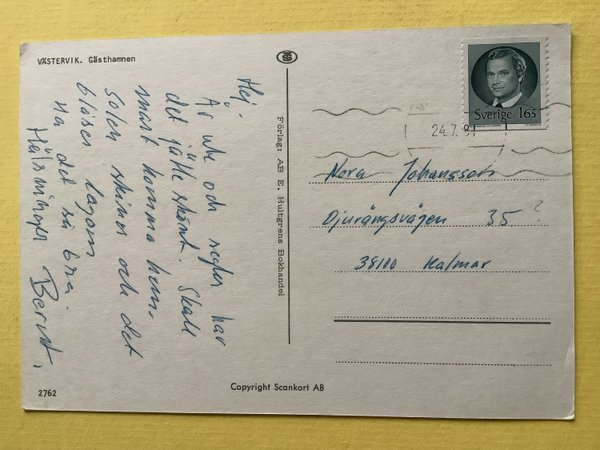 VÄSTERVIK. Gästhamnen
Hej.
Är ute och seglar har
det jätte skönt. Skall
snart komma hem.
Solen skiner och det
blåser lagom
Ha det så bra.
Hälsningar Bernt.
2762
Förlag: AB E. Hultgrens Bokhandel
Copyright Scankort AB
Sverige 165
24.7.81
Nora Johansson
Djurängsvägen 35 ?
38100 Kalmar